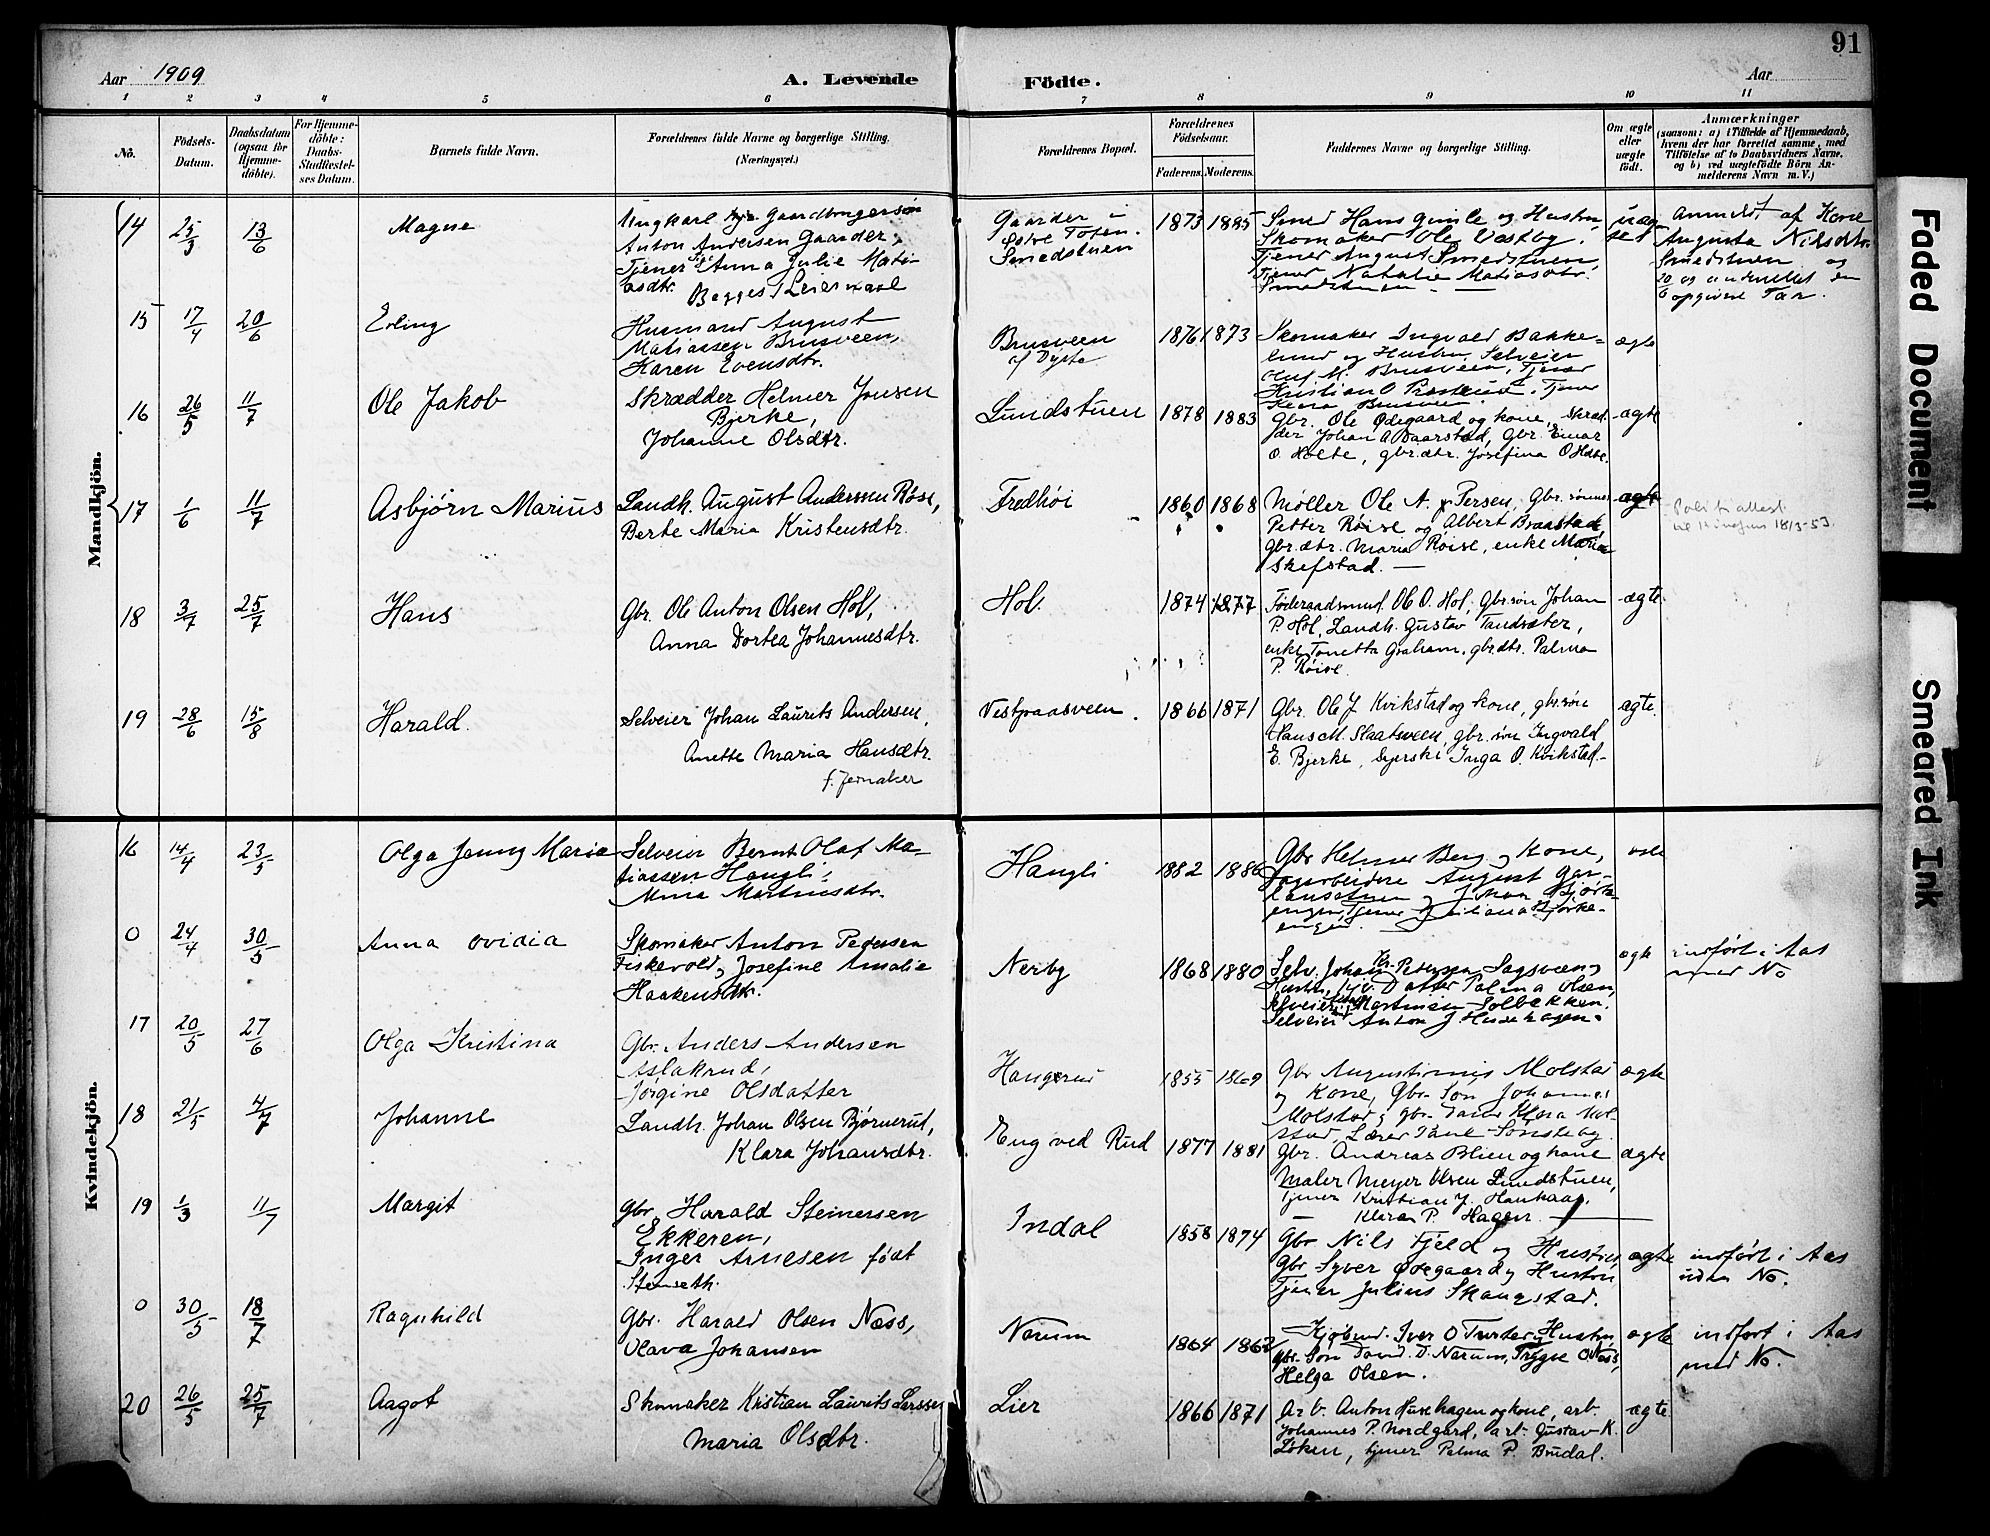 91
Aar 1909
A. Levende
Födte.
Aar
1 2 3 4 5 6 7 8 9 10 11
No.
Födsels-
Datum.
Daabsdatum
(ogsaa for
Hjemme-
döbte).
For Hjemme-
döbte:
Daabs-
Stadfæstel-
ses Datum.
Barnets fulde Navn.
Forældrenes fulde Navne og borgerlige Stilling.
(Næringsvei.)
Forældrenes Bopæl.
Forældrenes
Födselsaar.
Faderens.
Moderens.
Faddernes Navne og borgerlige Stilling.
Om ægte
eller
uægte
födt.
Anmærkninger
(saasom: a) i Tilfælde af Hjemmedaab,
hvem der har forrettet samme, med
Tilföielse af to Daabsvidners Navne,
og b) ved uægtefödte Börn An-
melderens Navn m. V.)
Mandkjön.
14 25/3 13/6 Magne
Ungkarl Gaardbrugersøn
Anton Andersen Gaarder,
Tjener Anna Julie Mati-
asdtr.
Begges 1 Leiermaal
Gaarder i
Østre Toten.
Smedstuen
1873 1885
Smed Hans Gimle og Hustru,
Skomaker Ole Vestby,
Tjener August Smedstuen,
Tjener Natalie Matiasdtr.
Smedstuen
uæg-
te
Anmeldt af Kone
Augusta Nilsdtr.
Smedstuen og
opgivne Far.
15 17/4 20/6 Erling
Husmand August
Matiassen Brusveen,
Karen Evensdtr.
Brusveen
af Dyste
1876 1873
Skomaker Ingvald Bakke-
lund og Hustru, Selveier
Oluf M. Brusveen, Tjener
Kristian O Præsterud, Tjener
Brusveen.
ægte
16 26/5 11/7 Ole Jakob
Skrædder Helmer Jonsen
Bjerke,
Johanne Olsdtr.
Lundstuen
1878 1883
Gbr. Ole Ødegaard og kone, skræd-
der Johan A Baarstad, Gbr. Einar
O. Holte, gbr.dtr. Josefina O Holte.
ægte
17 1/6 11/7 Asbjörn Marius
Landh. August Anderssen Røise,
Berte Maria Kristensdtr.
Fredhöi
1860 1868
Møller Ole A. Persen, Gbr. sønner
Petter Røise og Albert Braastad,
gbr.dtr. Maria Røise, enke Maria
Skefstad.
ægte
18/3-53.
18 3/7 25/7 Hans
Gbr. Ole Anton Olsen Hol,
Anna Dortea Johannesdtr.
Hol.
1874 1877
Föderaadsmd. Ole O. Hol, Gbr.søn Johan
P. Hol, Landh. Gustav Tandsæter,
enke Tonetta Graham, gbr.dtr. Palma
P. Røise.
ægte
19 28/6 15/8 Harald.
Selveier Johan Laurits Andersen,
Anette Maria Hansdtr.
f. Jernaker
Vestraasveen.
1866 1871
Gbr. Ole J. Kvikstad og kone, gbr.søn
Hans M. Slaatsveen, gbr. søn Ingvald
E. Bjerke, Syerske Inga O. Kvikstad.
ægte.
Kvindekjön.
16 14/4 23/5 Olga Jenny Marie
Selveier Bernt Olaf Ma-
tiassen Haugli,
Mina Martinusdtr.
Haugli
1882 1886
Gbr Helmer Berg og Kone,
Dagarbeidere August
og Johan Bjørke-
engen, Tjener Juliana Bjørke-
engen.
0 24/4 30/5 Anna Ovidia
Skomaker Anton Pedersen
Fiskevold, Josefine Amalie
Haakensdtr.
Nerby
1868 1880
Selv. Johan Kr. Petersen Sagsveen og
Hustru, Datter Palma Olsen,
Selveier Martinsen Solbakken,
Selveier Anton J Husehagen.
ægte
indført i Aas
med No
17 20/5 27/6 Olga Kristina
Gbr. Anders Andersen
Aslakrud,
Jörgine Olsdatter
Haugerud
1855 1869
Gbr Augustinus Molstad
og Kone, Gbr. Søn Johannes
Molstad, gbr. Klara Mol-
stad Lærer Sønsteby.
ægte
18 21/5 4/7 Johanne
Landh. Johan Olsen Bjørnerud,
Klara Johansdtr.
Eng ved Rud
1877 1881
Gbr. Andreas Blien og kone
Maler Meyer Olsen Lundstuen,
Tjener Kristian J. Haukaas,
Klara P. Hagen.
ægte
19 1/3 11/7 Margit
Gbr. Harald Steinersen
Ekkeren,
Inger Arnesen født
Stenseth.
Indal
1858 1874
Gbr Nils Fjeld og Hustru,
Gbr Syver Ødegaard og Hustru,
Tjener Julius Skaugstad.
ægte
indført i Aas
uden No.
0 30/5 18/7 Ragnhild
Gbr. Harald Olsen Næss,
Olava Johansen
Narum
1864 1862
Kjøbmd. Iver O Turter, Hustru,
Gbr. Søn David D. Narum, Trygve O Næss,
Helga Olsen.
ægte
indført i Aas
med No.
20 26/5 25/7 Aagot
Skomaker Kristian Laurits Larssen
Maria Olsdtr.
Lier
1866 1871
Arb. Anton Husehagen og kone, arb.
Johannes P. Nordgård, arb. Gustav K.
Løken, tjener Palma P. Brudal.
ægte.
Faded Document
Smeared Ink